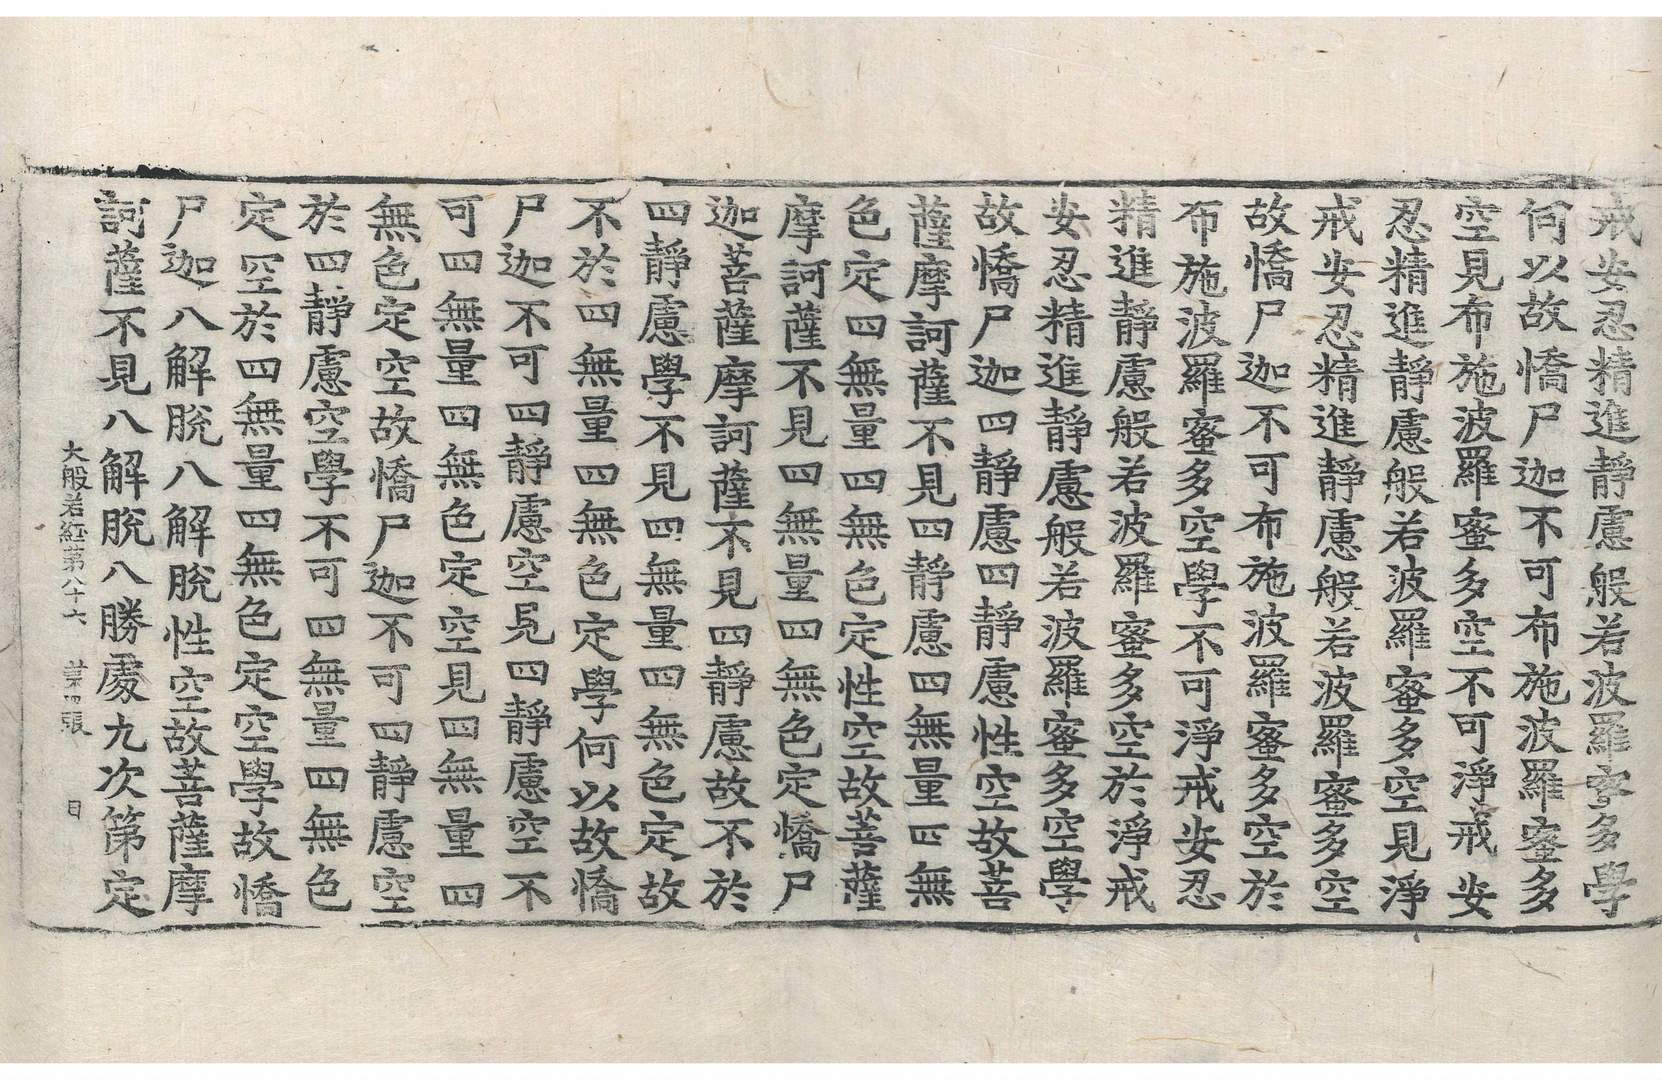 戒安忍精進靜慮般若波羅蜜多學
何以故憍尸迦不可布施波羅蜜多
空見布施波羅蜜多空不可淨戒安
忍精進靜慮般若波羅蜜多空見淨
戒安忍精進靜慮般若波羅蜜多空
故憍尸迦不可布施波羅蜜多空於
布施波羅蜜多空學不可淨戒安忍
精進靜慮般若波羅蜜多空於淨戒
安忍精進靜慮般若波羅蜜多空學
故憍尸迦四靜慮四靜慮性空故菩
薩摩訶薩不見四靜慮四無量四無
色定四無量四無色定性空故菩薩
摩訶薩不見四無量四無色定憍尸
迦菩薩摩訶薩不見四靜慮故不於
四靜慮學不見四無量四無色定故
不於四無量四無色定學何以故憍
尸迦不可四靜慮空見四靜慮空不
可四無量四無色定空見四無量四
無色定空故憍尸迦不可四靜慮空
於四靜慮空學不可四無量四無色
定空於四無量四無色定空學故憍
尸迦八解脫八解脫性空故菩薩摩
訶薩不見八解脫八勝處九次第定
大般若經第八十六 第四張 目